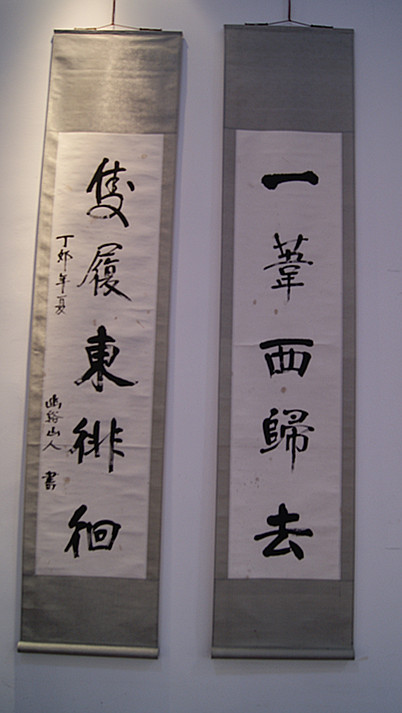 一葦西歸去
隻履東徘徊
丁卯年夏
幽谿山人書